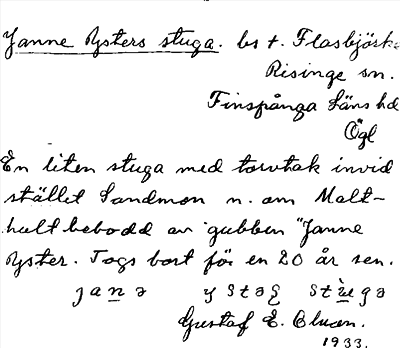 Janne Rysters stuga. bs t. Flasbjörk
Risinge sn.
Finspånga läns hd
Ögl
En liten stuga med torvtak invid
stället Sandmon n. om Malt-
hult bebodd av gubben "Janne
Ryster. Togs bort för en 20 år sen.
Gustaf E.
1933.